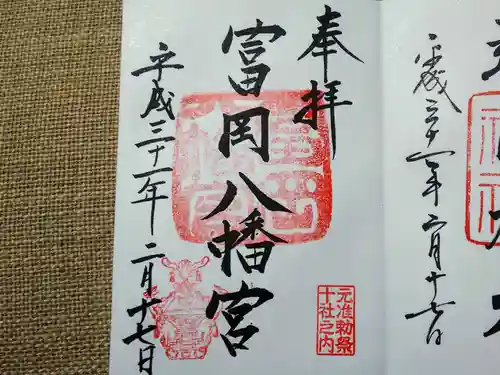 奉拝
富岡八幡宮
平成三十一年 二月十七日
元准勅祭
十社之内
平成三十一年 二月十七日